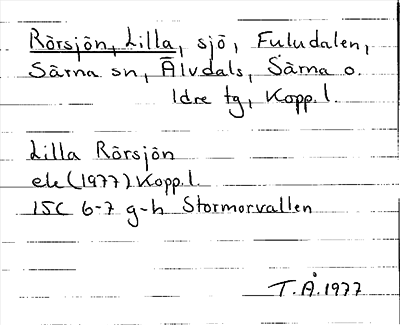 Rörsjön, Lilla, sjö, Fuludalen,
Särna sn, Älvdals, Särna o.
Idre tg, Kopp. l.
Lilla Rörsjön
ek (1977) Kopp. l.
15C 6-7 g-h Stormorvallen
T.Å. 1977